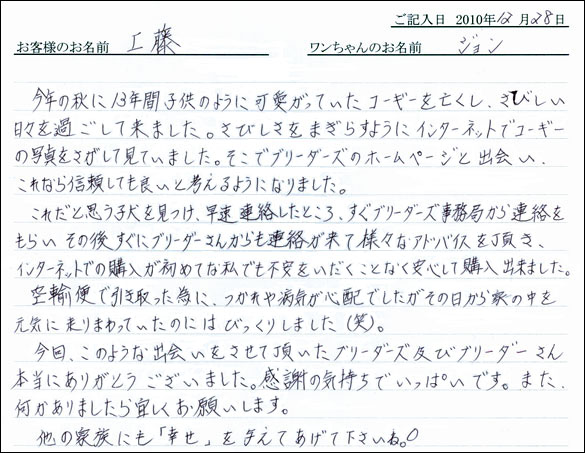 ご記入日 2010年12月28日
お客様のお名前 工藤 ワンちゃんのお名前 ジョン
今年の秋に13年間子供のように可愛がっていたコーギーを亡くし、さびしい
日々を過ごして来ました。さびしさをまぎらすようにインターネットでコーギー
の写真をさがして見ていました。そこでブリーダーズのホームページと出会い、
これなら信頼しても良いと考えるようになりました。
これだと思う子犬を見つけ、早速連絡したところ、すぐブリーダーズ事務局から連絡を
もらいその後すぐにブリーダーさんからも連絡が来て様々なアドバイスを頂き、
インターネットでの購入が初めてな私でも不安をいだくことなく安心して購入出来ました。
空輸便で引き取った為に、つかれや病気が心配でしたがその日から家の中を
元気に走りまわっていたのにはびっくりしました(笑)。
今回、このような出会いをさせて頂いたブリーダーズ及びブリーダーさん
本当にありがとうございました。感謝の気持ちでいっぱいです。また、
何かありましたら宜しくお願いします。
他の家族にも「幸せ」を与えてあげて下さいね。